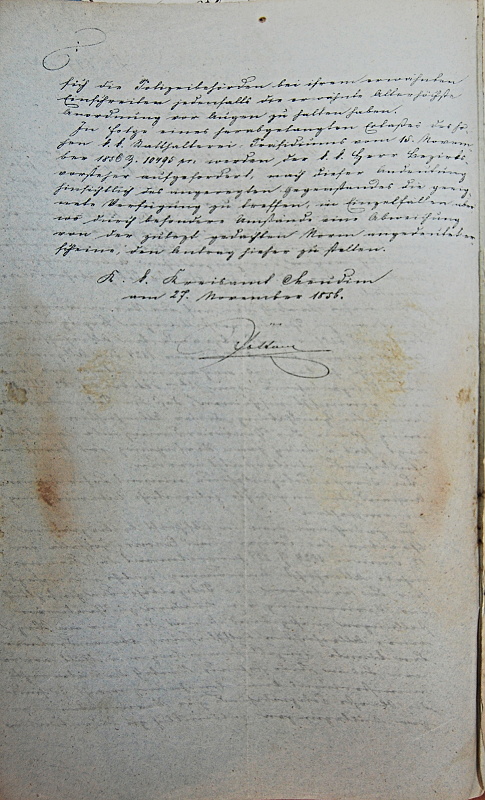 sich die Polizeibehörden bei ihrem erwähnten
Einschreiten jedenfalls die erwähnte Allerhöchste
Anordnung vor Augen zu halten haben.
In Folge eines herabgelangten Erlaßes des ho-
hen k. k. Statthalterei Präsidiums vom 15. Novem
ber 1856 Z. 10495 pr. werden der k. k. Herr Bezirks
vorsteher aufgefordert, nach dieser Andeutung
hinsichtlich des angeregten Gegenstandes die geeig
nete Verfügung zu treffen, in Einzelfällen aber
wo durch besondere Umstände eine Abweichung
von der zuletzt gedachten Norm angedeutet er
scheine, den Antrag hieher zu stellen.
K. k. Kreisamt Chrudim
am 27. November 1856.